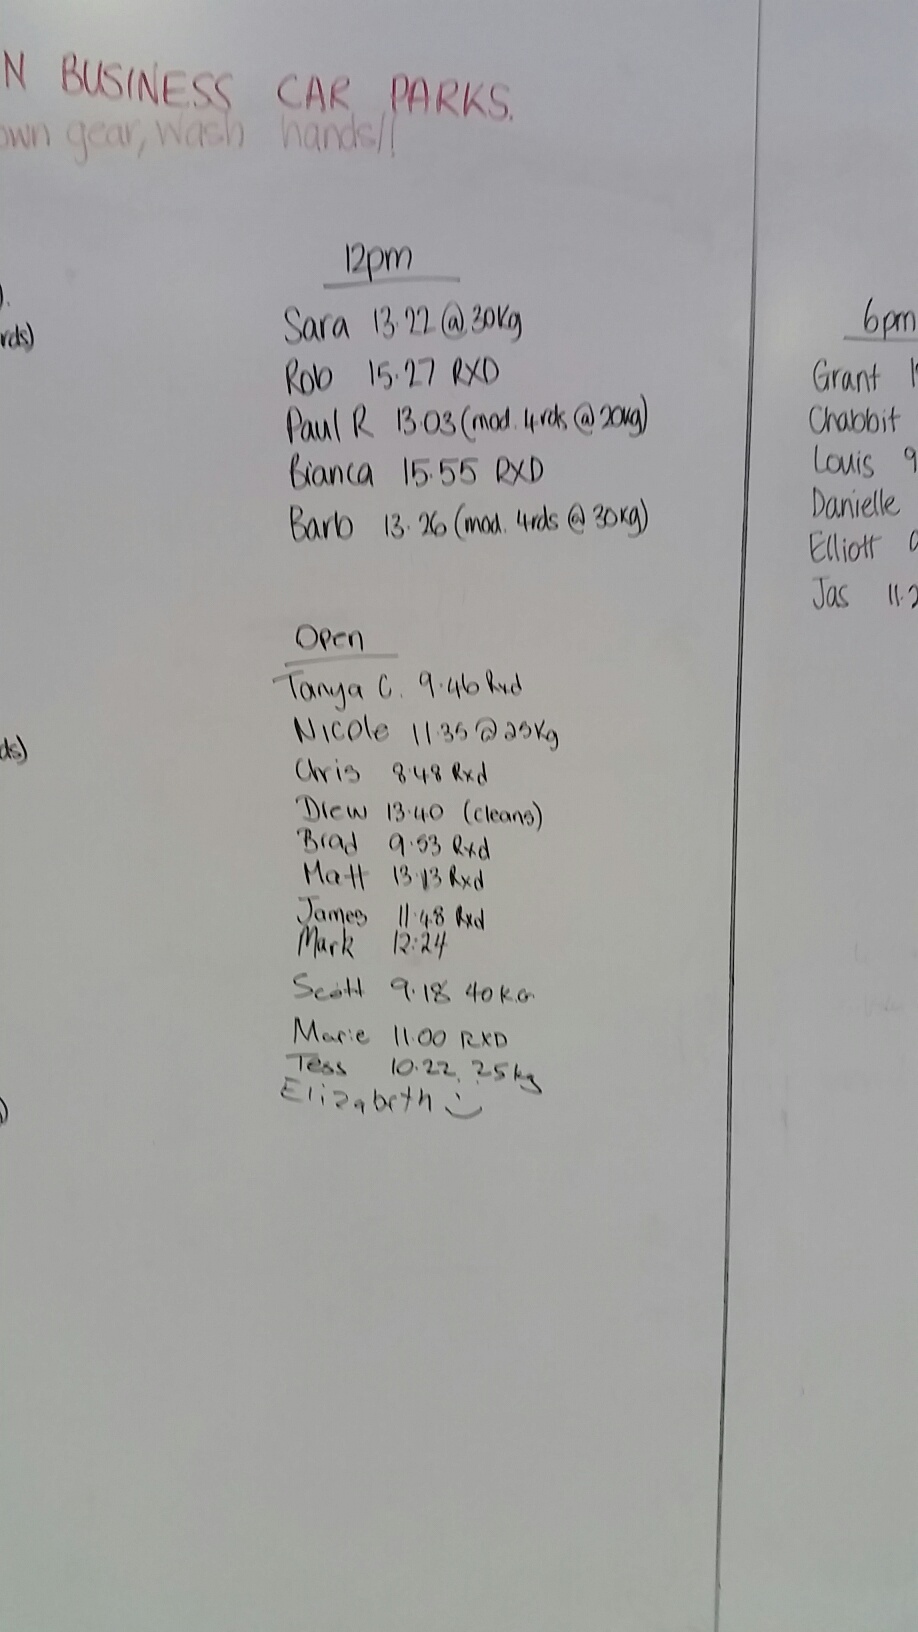 N BUSINESS CAR PARKS.
own gear, wash hands!!
12pm
Sara 13.22 @ 30Kg
Rob 15.27 RXD
Paul R 13.03 (mod. 4rds @ 20kg)
Bianca 15.55 RXD
Barb 13.26 (mod. 4rds @ 30kg)
Open
Tanya C. 9.46 Rxd
Nicole 11.35 @ 25Kg
Chris 8.48 Rxd
Drew 13.40 (cleans)
Brad 9.53 Rxd
Matt 13.13 Rxd
James 11.48 Rxd
Mark 12:24
Scott 9.18 40KG
Marie 11.00 RXD
Tess 10.22. 25kg
Elizabeth
6pm
Grant
Chabbit
Louis 9
Danielle
Elliott
Jas 11.2
rds)
ds)